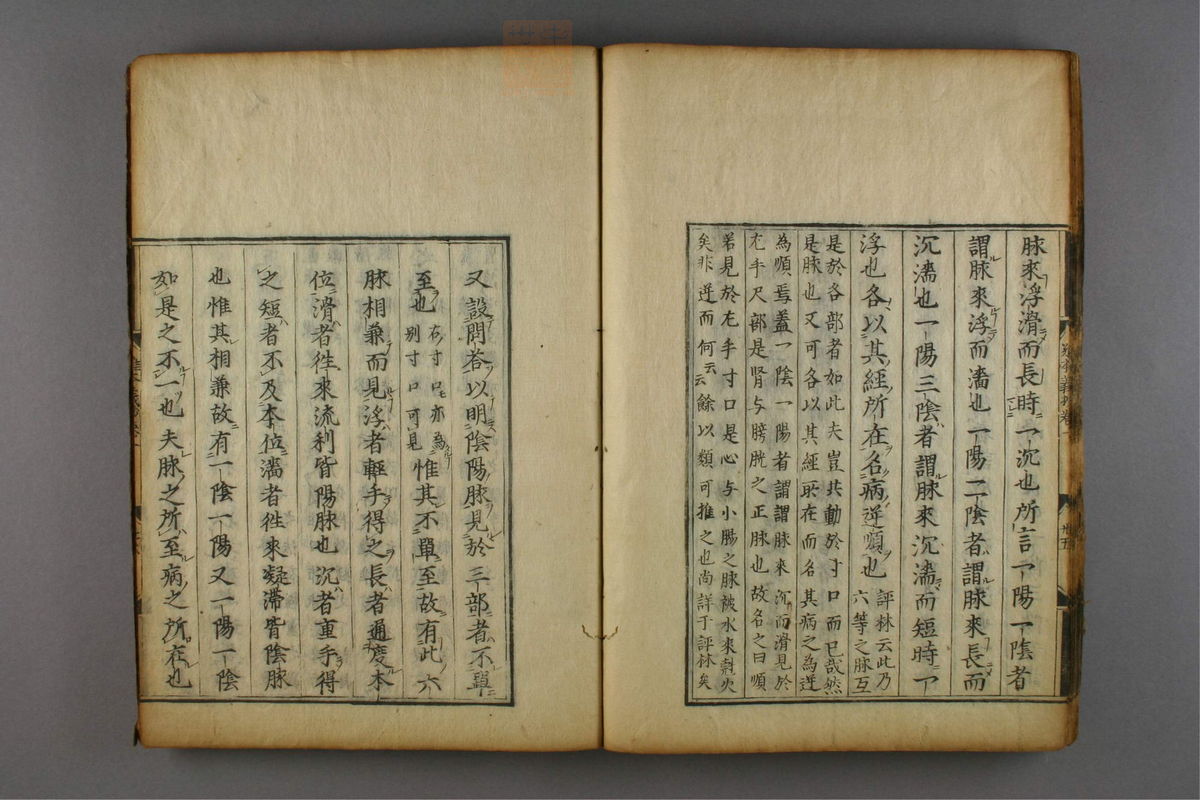 脉來浮滑而長時一沉也所言一陽一陰者
謂脉來浮而濇也一陽二陰者謂脉來長而
沉濇也一陽三陰者謂脉來沉濇而短時一
浮也各以其經所在名病逆順也
評林云此乃
六等之脉互
是於各部者如此夫豈共動於寸口而已哉然
是脉也又可各以其經所在而名其病之為逆
為順焉蓋一陰一陽者謂謂脉來沉而滑見於
左手尺部是腎与膀胱之正脉也故名之曰順
若見於左手寸口是心与小腸之脉被水來剋火
矣非逆而何云云餘以類可推之也尚詳于評林矣
卅五
又設問荅以明陰陽脉見於三部者不單
至也
右寸口亦為
別寸口可見
惟其不單至故有此六
脉相兼而見浮者輕手得之長者通度本
位滑者徃來流利皆陽脉也沉者重手得
之短者不及本位濇者徃來凝滯皆陰脉
也惟其相兼故有一陰一陽又一陽一陰
如是之不一也夫脉之所至病之所在也